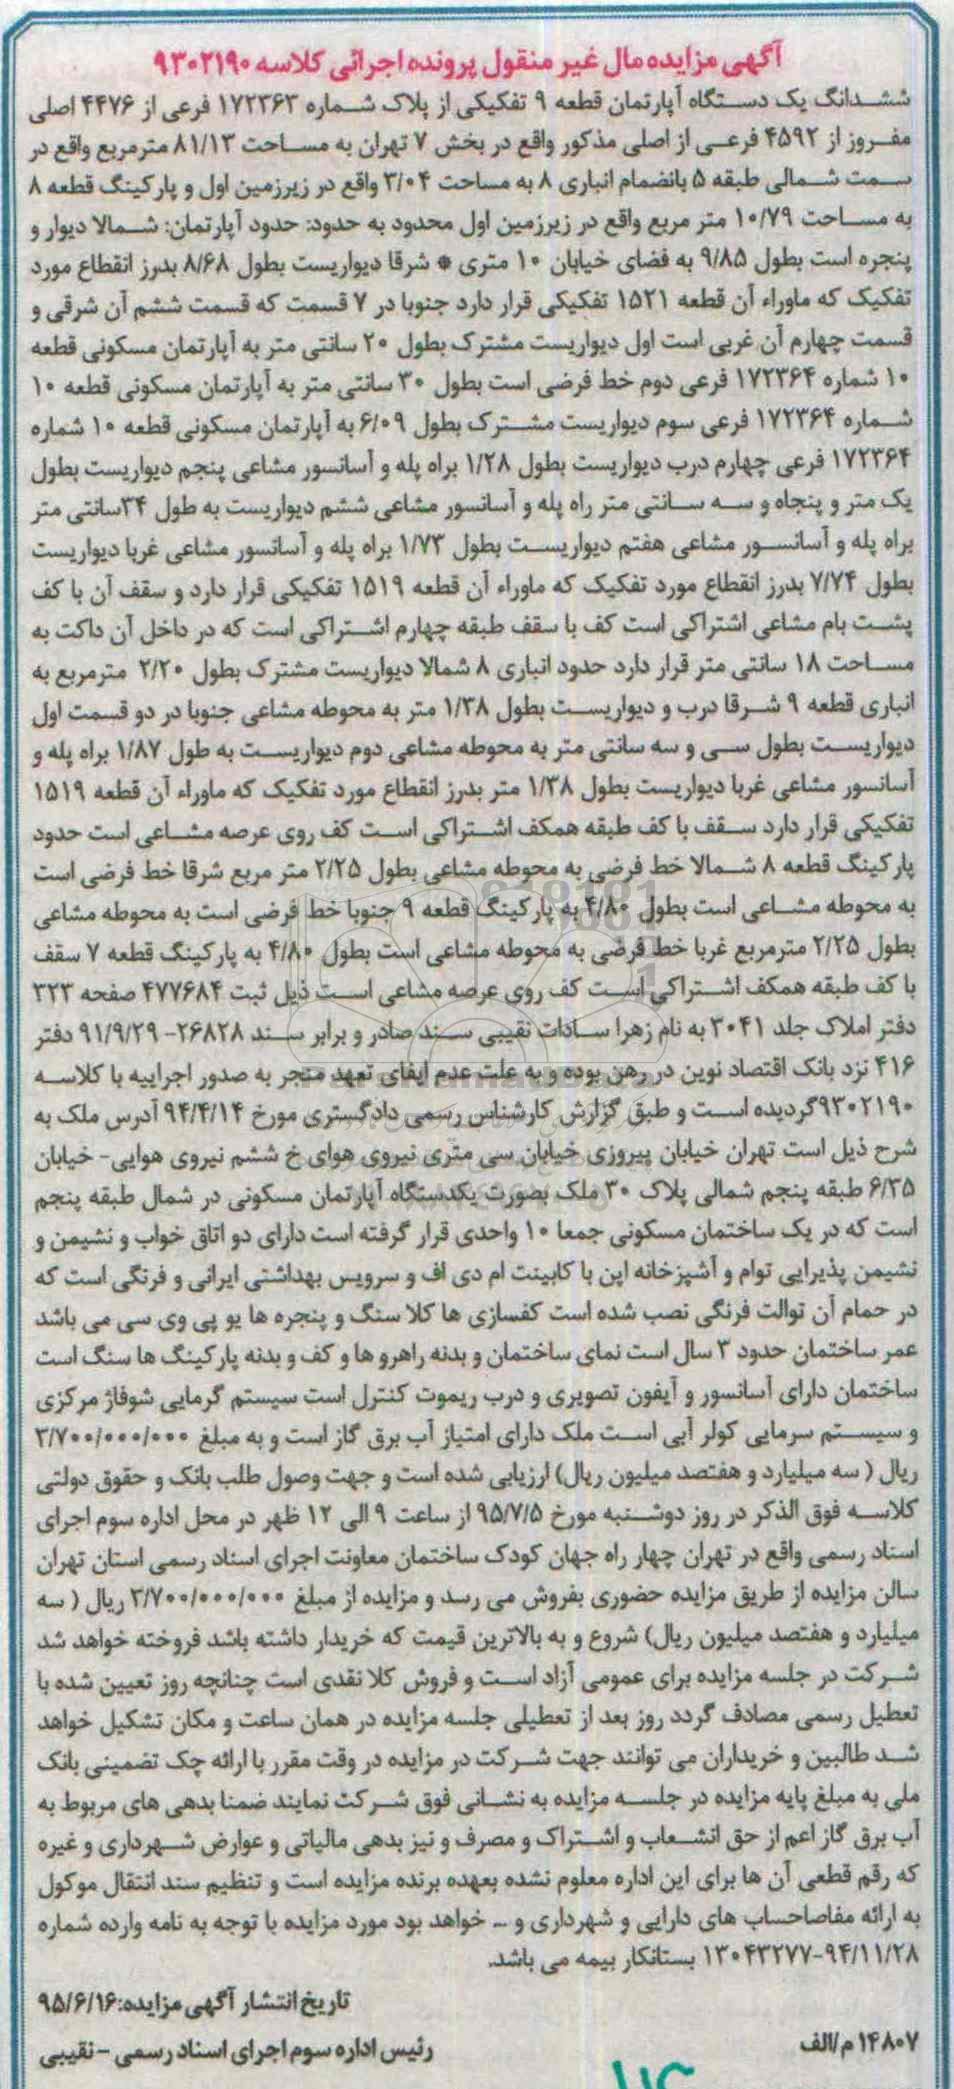 آگهی مزایده مال غیر منقول پرونده اجرائی کلاسه ۹۳۰۲۱۹۰
ششدانگ یک دستگاه آپارتمان قطعه ۹ تفکیکی از پلاک شماره ۱۷۲۳۶۳ فرعی از ۴۴۷۶ اصلی
مفروز از ۴۵۹۲ فرعی از اصلی مذکور واقع در بخش ۷ تهران به مساحت ۸۱/۱۳ مترمربع واقع در
سمت شمالی طبقه ۵ بانضمام انباری ۸ به مساحت ۳/۰۴ واقع در زیرزمین اول و پارکینگ قطعه ۸
به مساحت ۱۰/۷۹ متر مربع واقع در زیرزمین اول محدود به حدود: حدود آپارتمان: شمالا دیوار و
پنجره است بطول ۹/۸۵ به فضای خیابان ۱۰ متری * شرقا دیواریست بطول ۸/۶۸ بدرز انقطاع مورد
تفکیک که ماوراء آن قطعه ۱۵۲۱ تفکیکی قرار دارد جنوبا در ۷ قسمت که قسمت ششم آن شرقی و
قسمت چهارم آن غربی است اول دیواریست مشترک بطول ۲۰ سانتی متر به آپارتمان مسکونی قطعه
۱۰ شماره ۱۷۲۳۶۴ فرعی دوم خط فرضی است بطول ۳۰ سانتی متر به آپارتمان مسکونی قطعه ۱۰
شماره ۱۷۲۳۶۴ فرعی سوم دیواریست مشترک بطول ۶/۰۹ به آپارتمان مسکونی قطعه ۱۰ شماره
۱۷۲۳۶۴ فرعی چهارم درب دیواریست بطول ۱/۲۸ براه پله و آسانسور مشاعی پنجم دیواریست بطول
یک متر و پنجاه و سه سانتی متر راه پله و آسانسور مشاعی ششم دیواریست به طول ۳۴سانتی متر
براه پله و آسانسور مشاعی هفتم دیواریست بطول ۱/۷۳ براه پله و آسانسور مشاعی غربا دیواریست
بطول ۷/۷۴ بدرز انقطاع مورد تفکیک که ماوراء آن قطعه ۱۵۱۹ تفکیکی قرار دارد و سقف آن با کف
پشت بام مشاعی اشتراکی است کف با سقف طبقه چهارم اشتراکی است که در داخل آن داکت به
مساحت ۱۸ سانتی متر قرار دارد حدود انباری ۸ شمالا دیواریست مشترک بطول ۲/۲۰ مترمربع به
انباری قطعه ۹ شرقا درب و دیواریست بطول ۱/۳۸ متر به محوطه مشاعی جنوبا در دو قسمت اول
دیواریست بطول سی و سه سانتی متر به محوطه مشاعی دوم دیواریست به طول ۱/۸۷ براه پله و
آسانسور مشاعی غربا دیواریست بطول ۱/۳۸ متر بدرز انقطاع مورد تفکیک که ماوراء آن قطعه ۱۵۱۹
تفکیکی قرار دارد سقف با کف طبقه همکف اشتراکی است کف روی عرصه مشاعی است حدود
پارکینگ قطعه ۸ شمالا خط فرضی به محوطه مشاعی بطول ۲/۲۵ متر مربع شرقا خط فرضی است
به محوطه مشاعی است بطول ۴/۸۰ به پارکینگ قطعه ۹ جنوبا خط فرضی است به محوطه مشاعی
بطول ۲/۲۵ مترمربع غربا خط فرضی به محوطه مشاعی است بطول ۴/۸۰ به پارکینگ قطعه ۷ سقف
با کف طبقه همکف اشتراکی است کف روی عرصه مشاعی است ذیل ثبت ۴۷۷۶۸۴ صفحه ۳۲۳
دفتر املاک جلد ۳۰۴۱ به نام زهرا سادات نقیبی سند صادر و برابر سند ۲۶۸۲۸- ۹۱/۹/۲۹ دفتر
۴۱۶ نزد بانک اقتصاد نوین در رهن بوده و به علت عدم ایفای تعهد منجر به صدور اجراییه با کلاسه
۹۳۰۲۱۹۰گردیده است و طبق گزارش کارشناس رسمی دادگستری مورخ ۹۴/۴/۱۴ آدرس ملک به
شرح ذیل است تهران خیابان پیروزی خیابان سی متری نیروی هوای خ ششم نیروی هوایی- خیابان
۶/۳۵ طبقه پنجم شمالی پلاک ۳۰ ملک بصورت یکدستگاه آپارتمان مسکونی در شمال طبقه پنجم
است که در یک ساختمان مسکونی جمعا ۱۰ واحدی قرار گرفته است دارای دو اتاق خواب و نشیمن و
نشیمن پذیرایی توام و آشپزخانه اپن با کابینت ام دی اف و سرویس بهداشتی ایرانی و فرنگی است که
در حمام آن توالت فرنگی نصب شده است کفسازی ها کلا سنگ و پنجره ها یو پی وی سی می باشد
عمر ساختمان حدود ۳ سال است نمای ساختمان و بدنه راهرو ها و کف و بدنه پارکینگ ها سنگ است
ساختمان دارای آسانسور و آیفون تصویری و درب ریموت کنترل است سیستم گرمایی شوفاژ مرکزی
و سیستم سرمایی کولر آبی است ملک دارای امتیاز آب برق گاز است و به مبلغ ۳/۷۰۰/۰۰۰/۰۰۰
ریال ( سه میلیارد و هفتصد میلیون ریال) ارزیابی شده است و جهت وصول طلب بانک و حقوق دولتی
کلاسه فوق الذکر در روز دوشنبه مورخ ۹۵/۷/۵ از ساعت ۹ الی ۱۲ ظهر در محل اداره سوم اجرای
اسناد رسمی واقع در تهران چهار راه جهان کودک ساختمان معاونت اجرای اسناد رسمی استان تهران
سالن مزایده از طریق مزایده حضوری بفروش می رسد و مزایده از مبلغ ۳/۷۰۰/۰۰۰/۰۰۰ ریال ( سه
میلیارد و هفتصد میلیون ریال) شروع و به بالاترین قیمت که خریدار داشته باشد فروخته خواهد شد
شرکت در جلسه مزایده برای عمومی آزاد است و فروش کلا نقدی است چنانچه روز تعیین شده با
تعطیل رسمی مصادف گردد روز بعد از تعطیلی جلسه مزایده در همان ساعت و مکان تشکیل خواهد
شد طالبین و خریداران می توانند جهت شرکت در مزایده در وقت مقرر با ارائه چک تضمینی بانک
ملی به مبلغ پایه مزایده در جلسه مزایده به نشانی فوق شرکت نمایند ضمنا بدهی های مربوط به
آب برق گاز اعم از حق انشعاب و اشتراک و مصرف و نیز بدهی مالیاتی و عوارض شهرداری و غیره
که رقم قطعی آن ها برای این اداره معلوم نشده بعهده برنده مزایده است و تنظیم سند انتقال موکول
به ارائه مفاصاحساب های دارایی و شهرداری و ... خواهد بود مورد مزایده با توجه به نامه وارده شماره
۹۴/۱۱/۲۸-۱۳۰۴۳۲۷۷ بستانکار بیمه می باشد.
تاریخ انتشار آگهی مزایده:۹۵/۶/۱۶
۱۴۸۰۷ م/الف
رئیس اداره سوم اجرای اسناد رسمی -نقیبی